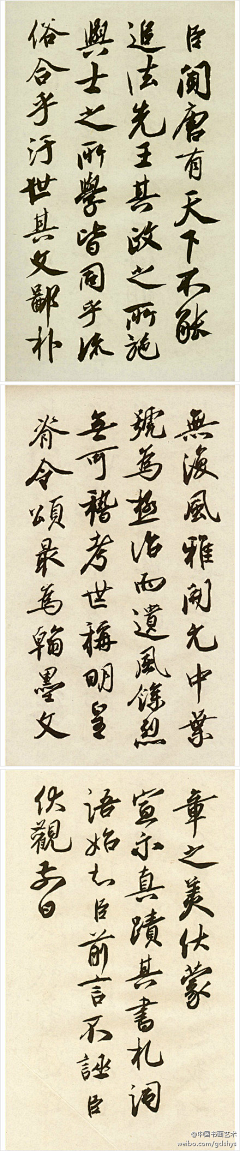 臣聞唐有天下不能
追法先王其政之所施
與士之所學皆同乎流
俗合乎汙世其文鄙朴
無復風雅開元中葉
號為極治而遺風餘烈
無可稽考世稱明皇
脊令頌最為翰墨文
章之美伏蒙
宣示真蹟其書札詞
語始知臣前言不誣臣
伏觀日
@中国书画艺术
weibo.com/gdshys